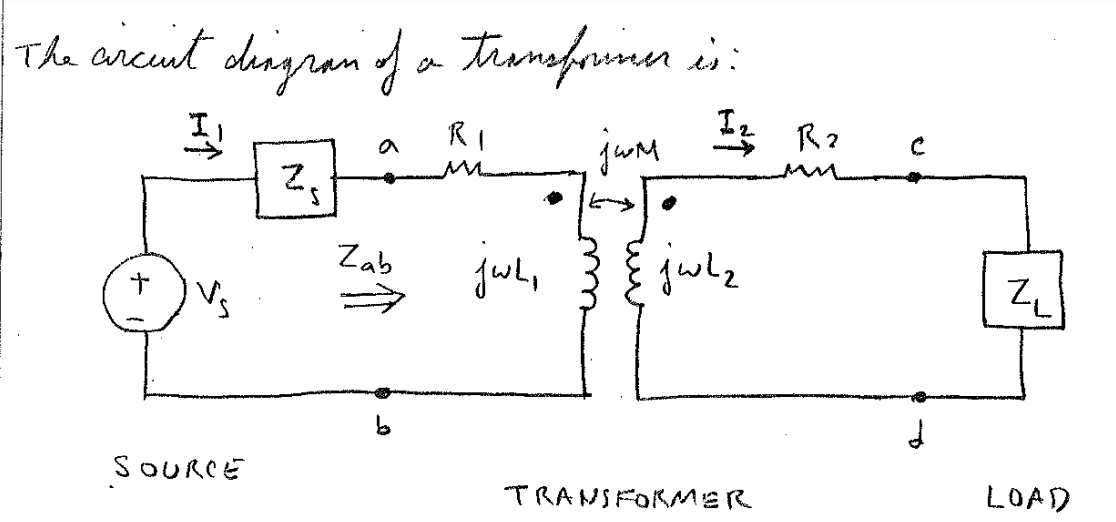 The circuit diagram of a transformer is:
I1 Zs a R1 jwM I2 R2 c
+ - Vs Zab jwL1 jwL2 ZL
b d
SOURCE TRANSFORMER LOAD